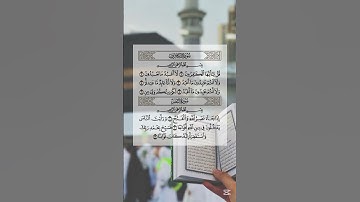 سُورَةُ الكَافِرُونَ
بِسْمِ اللَّهِ الرَّحْمَٰنِ الرَّحِيمِ
قُلْ يَٰٓأَيُّهَا ٱلْكَٰفِرُونَ ۝ لَآ أَعْبُدُ مَا تَعْبُدُونَ ۝
وَلَآ أَنتُمْ عَٰبِدُونَ مَآ أَعْبُدُ ۝ وَلَآ أَنَا۠ عَابِدٌ مَّا عَبَدتُّمْ ۝
وَلَآ أَنتُمْ عَٰبِدُونَ مَآ أَعْبُدُ ۝ لَكُمْ دِينُكُمْ وَلِيَ دِينِ ۝
سُورَةُ النَّصْرِ
بِسْمِ اللَّهِ الرَّحْمَٰنِ الرَّحِيمِ
إِذَا جَآءَ نَصْرُ ٱللَّهِ وَٱلْفَتْحُ ۝ وَرَأَيْتَ ٱلنَّاسَ
يَدْخُلُونَ فِى دِينِ ٱللَّهِ أَفْوَاجًا ۝ فَسَبِّحْ بِحَمْدِ رَبِّكَ
وَٱسْتَغْفِرْهُ إِنَّهُۥ كَانَ تَوَّابًا ۝